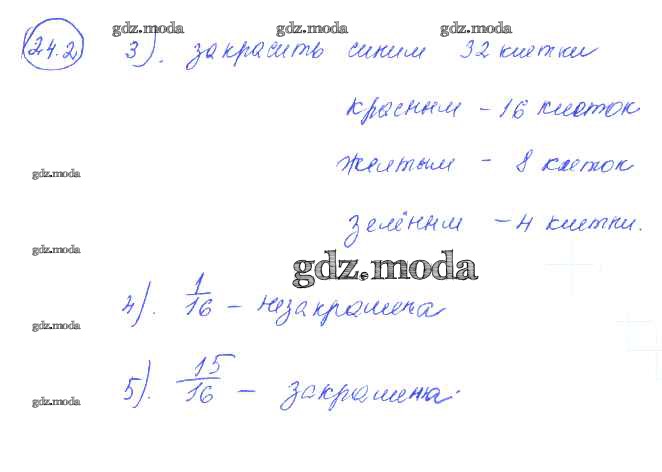 gdz.moda gdz.moda gdz.moda
24.2 3). закрасить синим 32 клетки
красным – 16 клеток
жёлтым – 8 клеток
gdz.moda
зелёным – 4 клетки.
gdz.moda
gdz.moda
4). 1/16 – незакрашена
gdz.moda
5). 15/16 – закрашена.
gdz.moda